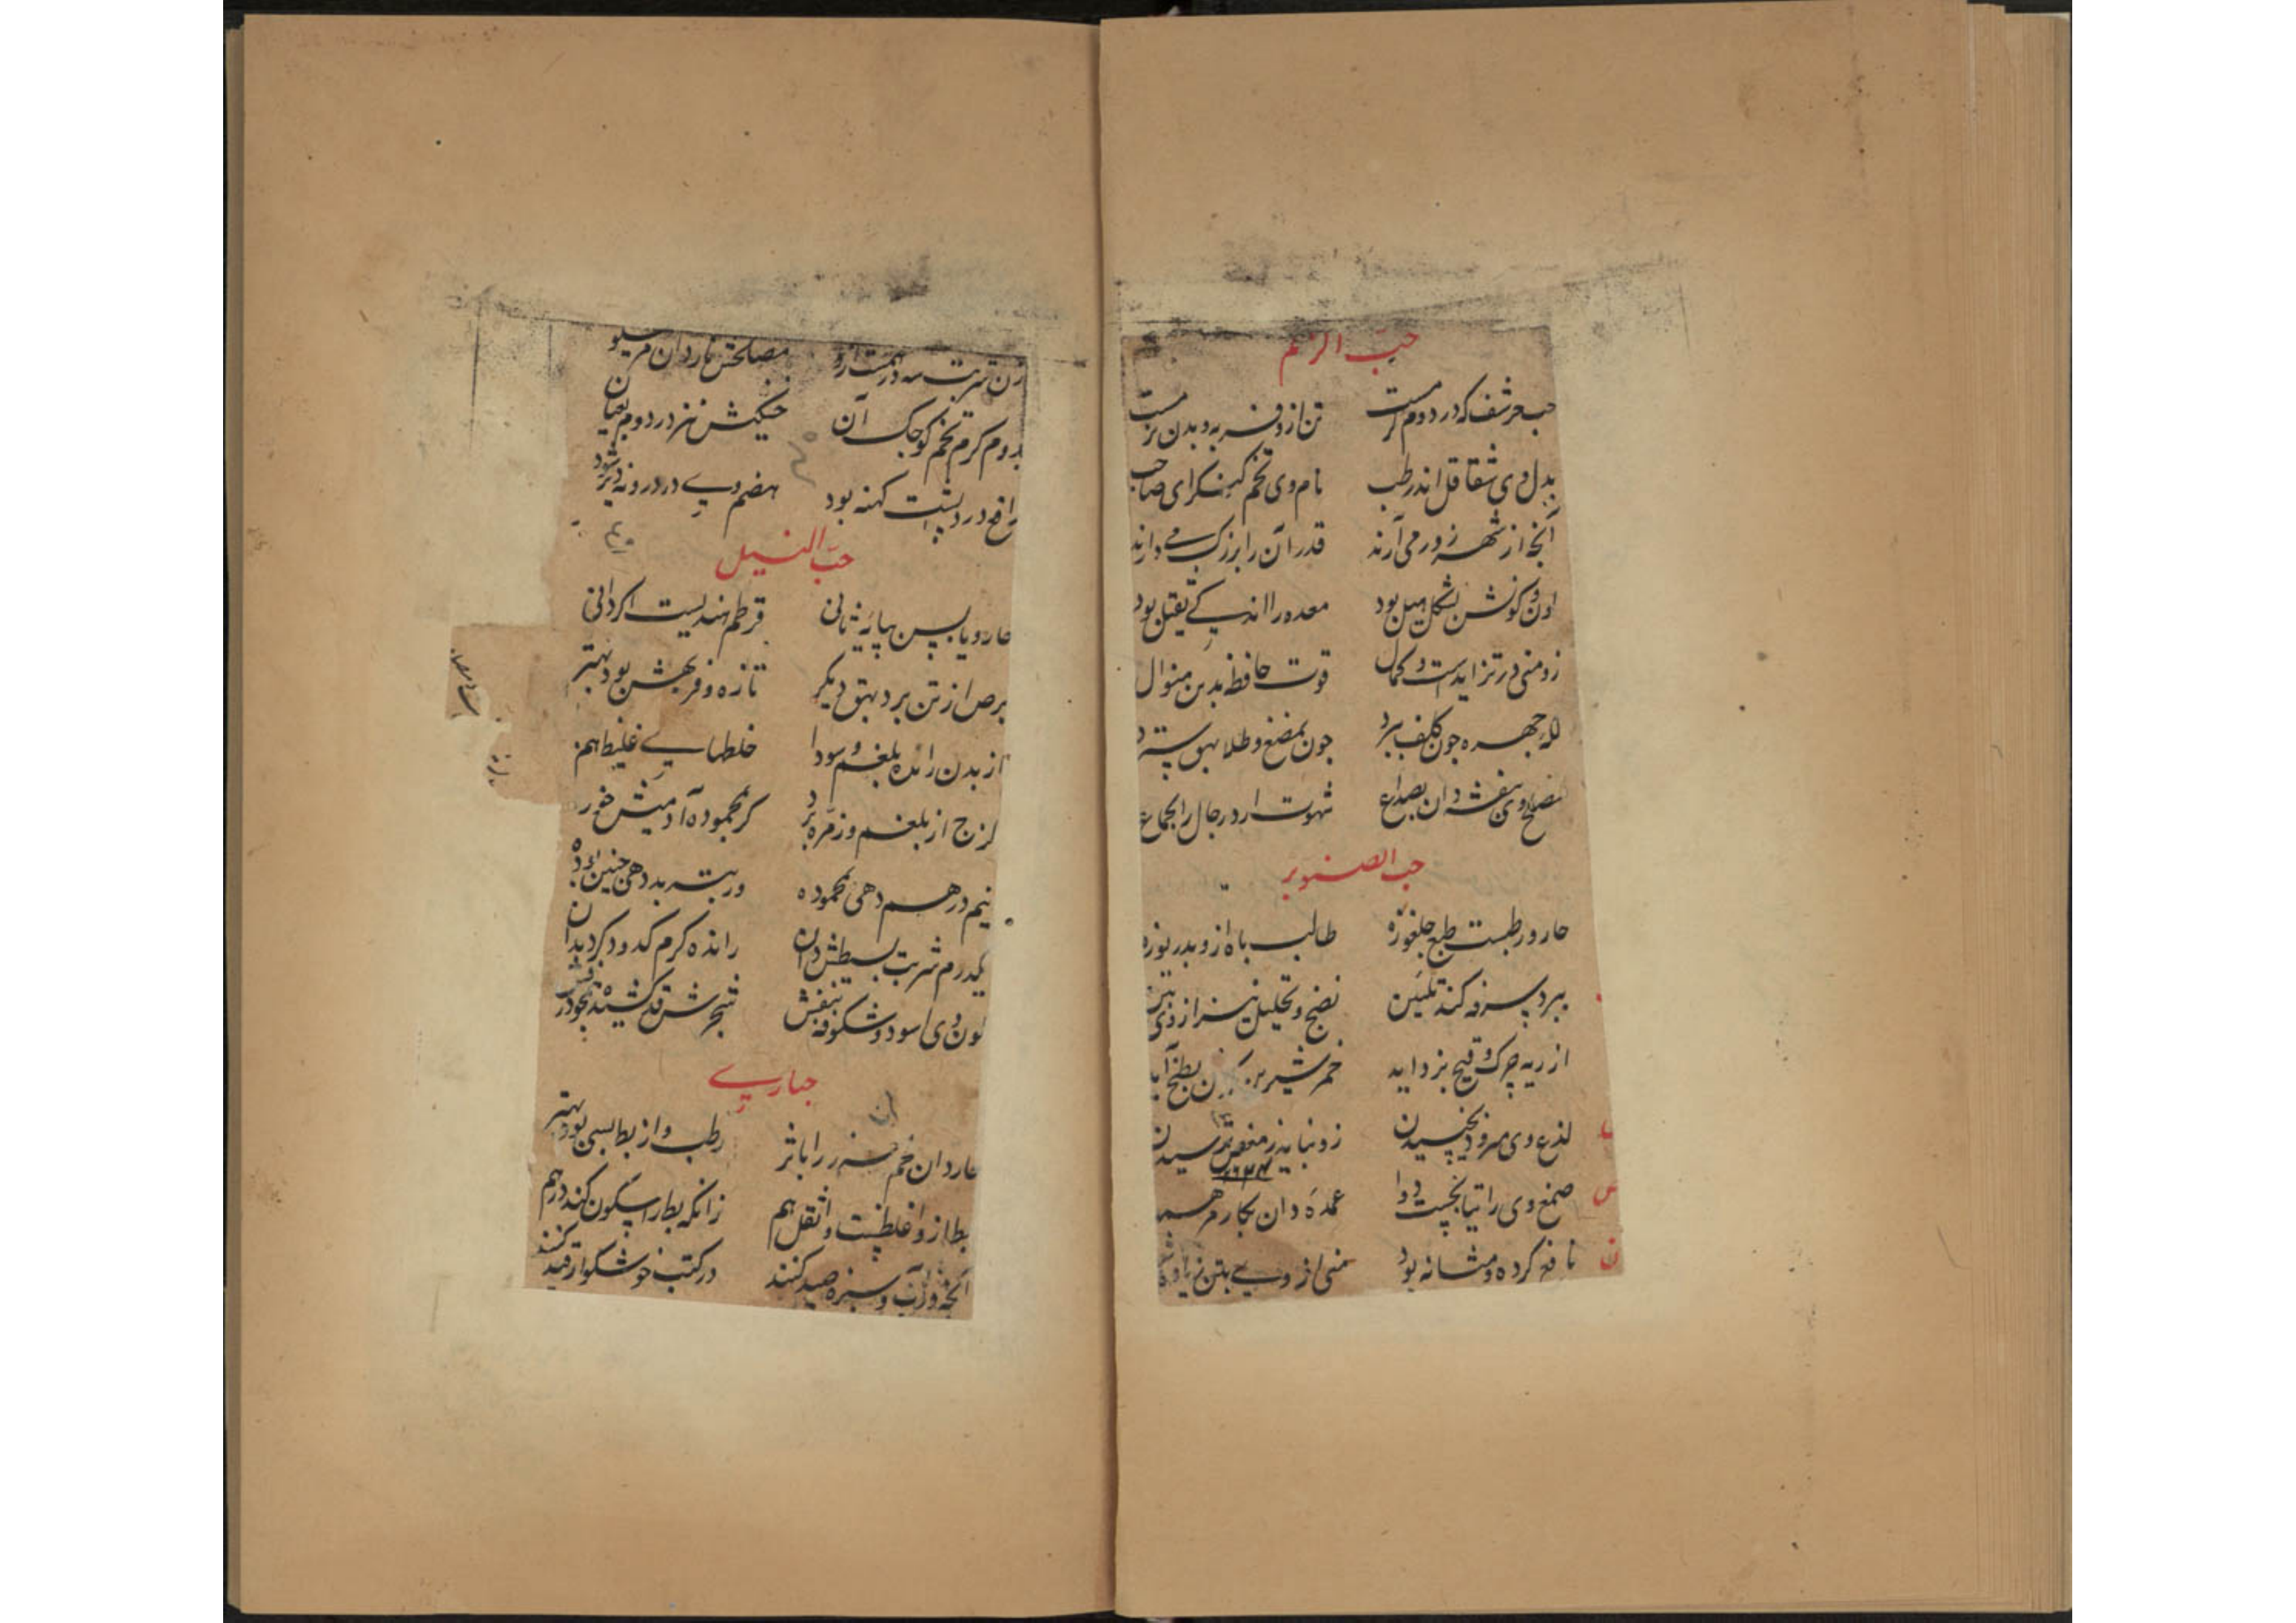 حبّ الزلم
حب عرشف که در دوم کرمست تن ازو فربه و بدن نرمست
بدل وی شقاقل اندر طب نام وی تخم کنکر ای صاحب
آنچه از شهر زور می آرند قدر آن را بزرک می دارند
لون وکونش بشکل میل بود معده را اندکی ثقیل بود
زو منی در تزاید است و کمال قوت حافظه بدین منوال
لکه چهره چون کلف ببرد چون بمضغ و طلا بهق سترد
مصلح وی بنفشه دان بصداع شهوت ارد رجال را بجماع
حب الصنوبر
حار و رطبست طبع جلغوزه طالب باه ازو بدریوزه
ببرد سرفه کند تلیین نضج و تحلیل نیز از وی بین
از ریه چرک و قیح بزداید خمر شیرین بطبخ
لذع وی مرود بخیسیدن زو نیاید زمغص ترسیدن
۱۶۲۴
صمغ وی راتیانجست دوا عمده دان بکار مرهم
نافع کرده و مثانه بود منی از وی بتن
وزن شربت سه درمست ازو مصلحش ناردان
بدوم کرم تخم کوچک آن خشکیش نیز در دوم بعیان
رافع درد پشت کهنه بود هضم وی در درونه دیر شود
حبّ النیل
حار و یابس بپایه ثانی قرطم هندیست اکر دانی
برص از تن برد بهق دیکر تازه و فربهش بود بهتر
از بدن رانده بلغم و سودا خلطهای غلیظ هم
لزج از بلغم و زمره برد کر بمحموده آدمیش خورد
نیم درهم دهی محموده وربتربد دهی چنین
یکدرم شربت بسیطش دان رانده کرم کدو دکر دیدان
لون وی اسود و شکوفه بنفش شجرش قد کشیده
حباری
حار دان خم را باثر رطب و از بط بسی بود بهتر
بط ازو اغلظست و اثقل هم زانکه بط را سکون کند درهم
آنچه در آب و سبزه صید کنند در کتب خوشکوار قید کنند